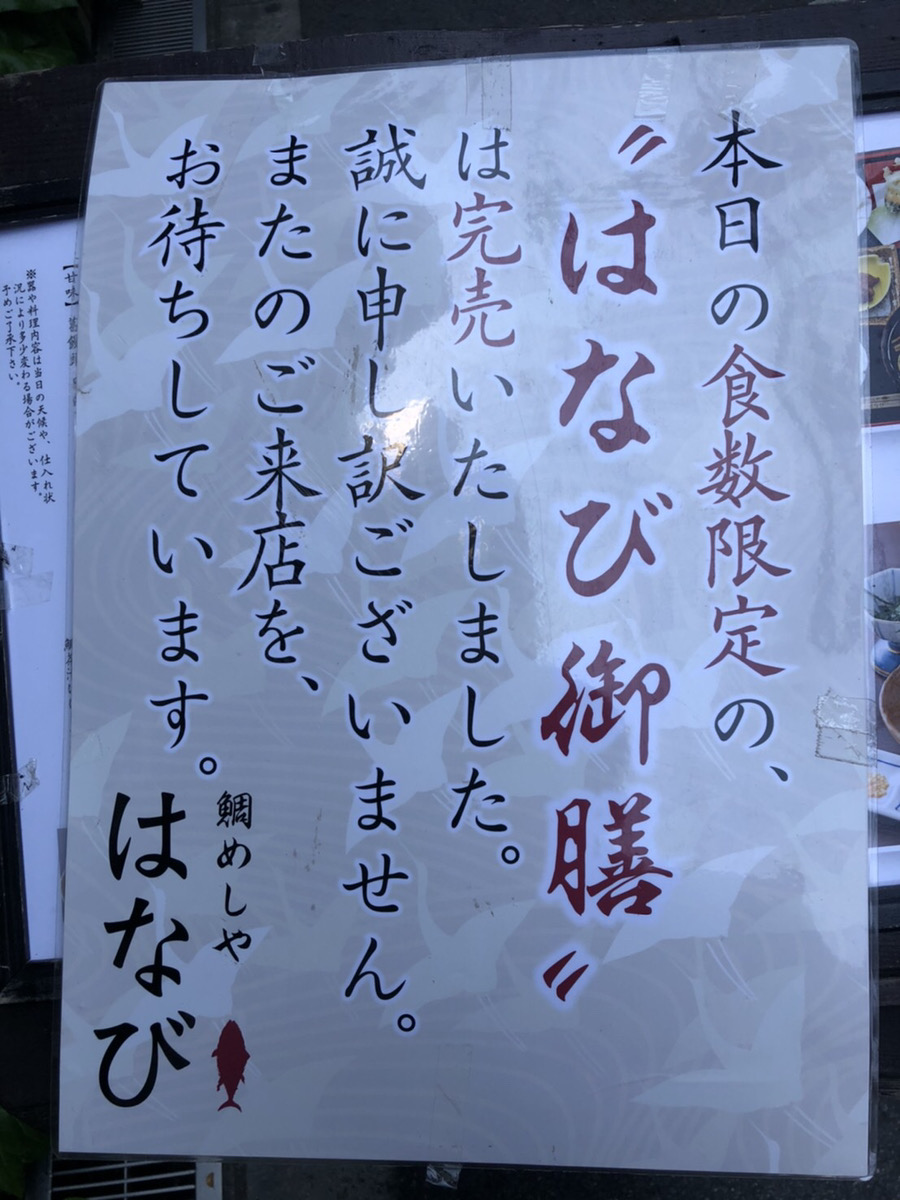 本日の食数限定の、
〝はなび御膳〟
は完売いたしました。
誠に申し訳ございません。
またのご来店を、
お待ちしています。
鯛めしや
はなび
【甘味】
※器や料理内容は当日の天候や、仕入れ状
況により多少変わる場合がございます。
予めご了承下さい。